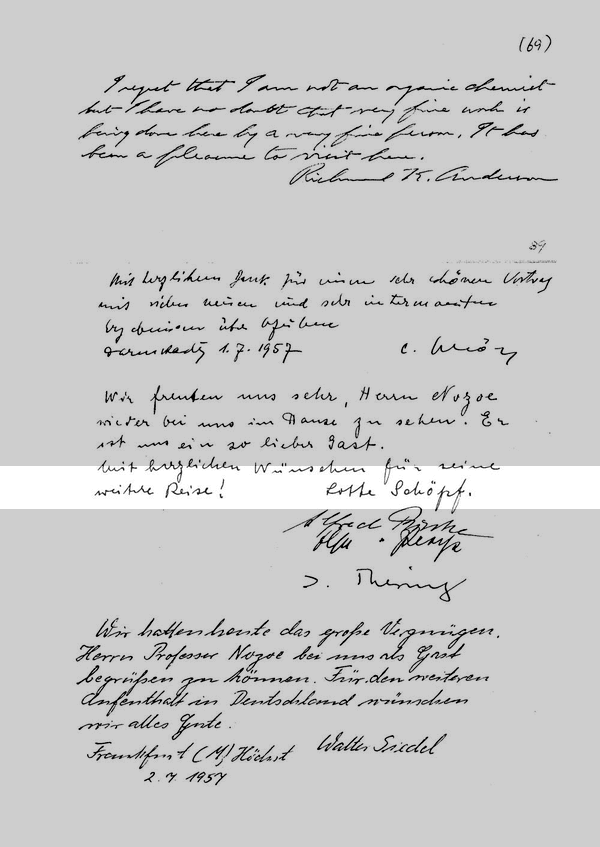 (69)
I regret that I am not an organic chemist
but I have no doubt that very fine work is
being done here by a very fine person. It has
been a pleasure to visit here.
Richard K. Anderson
39
Mit herzlichem Dank für einen sehr schönen Vortrag
mit vielen neuen und sehr interessanten
Ergebnissen über
Darmstadt, 1.7.1957 C.
Wir freuten uns sehr, Herrn Nozoe
wieder bei uns im Hause zu sehen. Er
ist uns ein so lieber Gast.
Mit herzlichen Wünschen für seine
weitere Reise! Lotte Schöpf.
Alfred
J.
Wir hatten heute das große Vergnügen,
Herrn Professor Nozoe bei uns als Gast
begrüßen zu können. Für den weiteren
Aufenthalt in Deutschland wünschen
wir alles Gute.
Frankfurt (M) Höchst Walter Siedel
2.7.1957